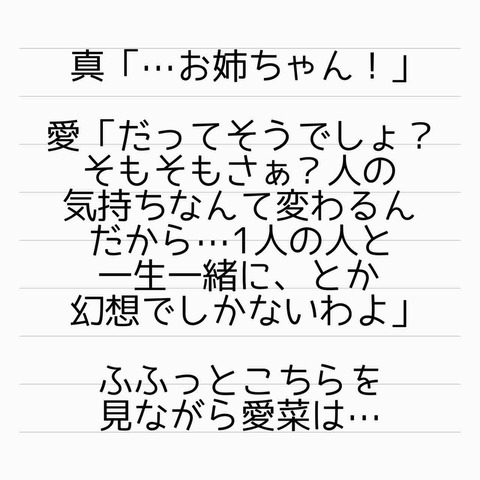 真「…お姉ちゃん！」
愛「だってそうでしょ？
そもそもさぁ？人の
気持ちなんて変わるん
だから…1人の人と
一生一緒に、とか
幻想でしかないわよ」
ふふっとこちらを
見ながら愛菜は…